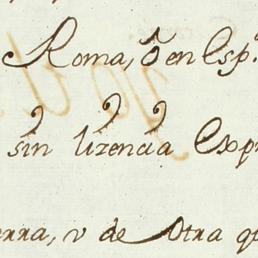 Roma, ò en Esp.
sin lizencia Exp
erra, v de otra q